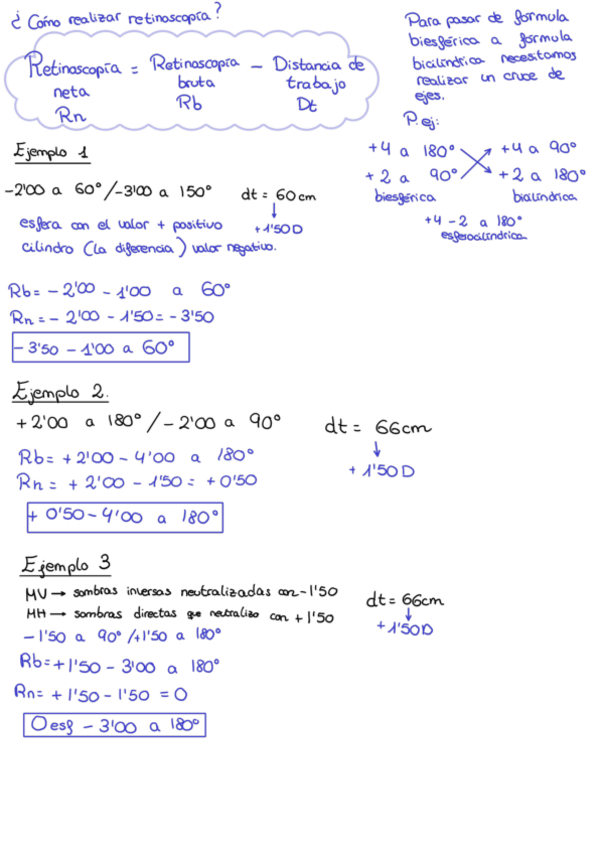 ¿Cómo realizar retinoscopía?
Retinoscopía neta Rn = Retinoscopía bruta Rb - Distancia de trabajo Dt
Para pasar de formula
biesférica a formula
bicilíndrica necesitamos
realizar un cruce de
ejes.
P. ej:
+4 a 180° +4 a 90°
+2 a 90° +2 a 180°
biesférica bicilíndrica
+4 -2 a 180°
esferocilíndrica
Ejemplo 1
-2'00 a 60° / -3'00 a 150° dt = 60cm
+1'50D
esfera con el valor + positivo
cilindro (la diferencia) valor negativo.
Rb = -2'00 -1'00 a 60°
Rn = -2'00 -1'50 = -3'50
-3'50 -1'00 a 60°
Ejemplo 2.
+2'00 a 180° / -2'00 a 90° dt = 66cm
+1'50D
Rb = +2'00 - 4'00 a 180°
Rn = +2'00 - 1'50 = +0'50
+0'50 - 4'00 a 180°
Ejemplo 3
MV → sombras inversas neutralizadas con -1'50
MH → sombras directas que neutralizo con +1'50
dt = 66cm
+1'50D
-1'50 a 90° / +1'50 a 180°
Rb = +1'50 - 3'00 a 180°
Rn = +1'50 - 1'50 = 0
0 esf - 3'00 a 180°